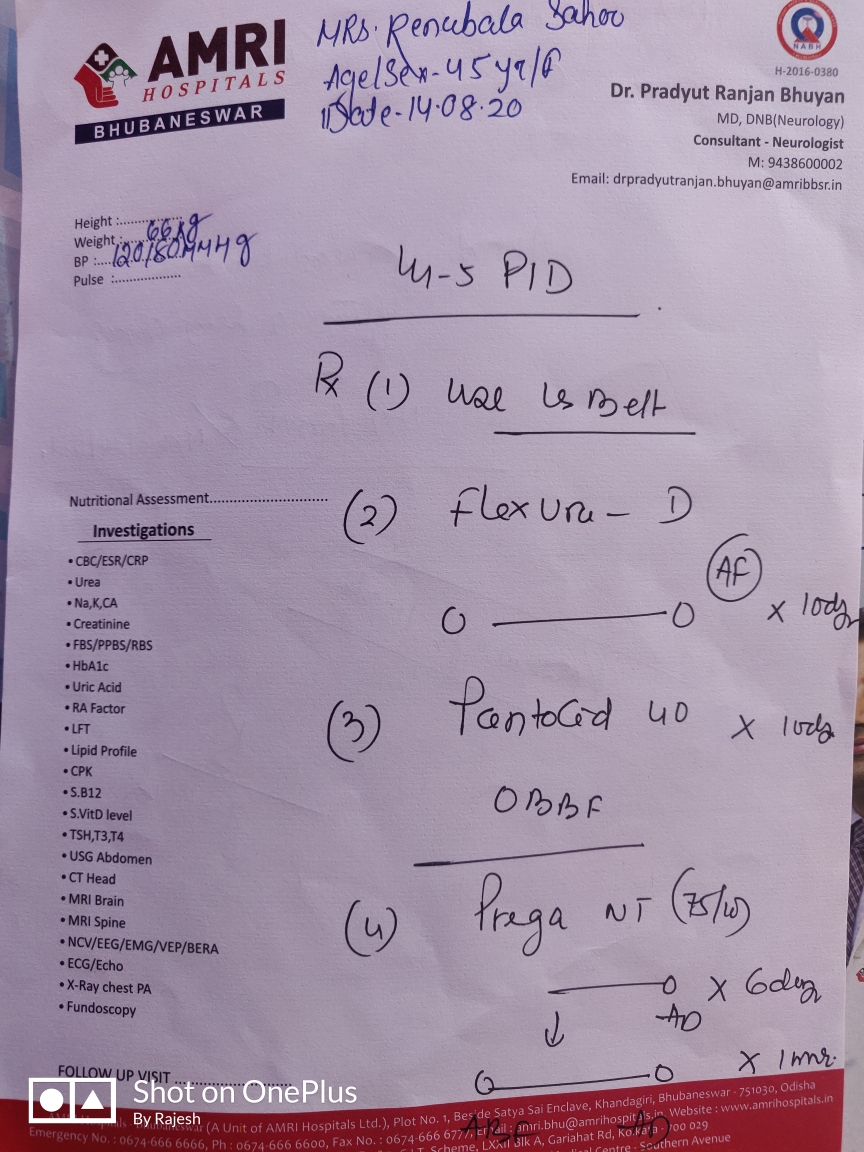 AMRI
HOSPITALS
BHUBANESWAR
MRS. Renubala Sahoo
Age/Sex - 45 yr/F
Date - 14.08.20
NABH
H-2016-0380
Dr. Pradyut Ranjan Bhuyan
MD, DNB(Neurology)
Consultant - Neurologist
M: 9438600002
Email: drpradyutranjan.bhuyan@amribbsr.in
Height :..................
Weight : 66 kg
BP :.... 120/80 MMHg
Pulse :..................
L4-5 PID
Rx (1) Use LS Belt
Nutritional Assessment..............................
(2) Flexura - D
AF
0 ———— 0 x 10dy
(3) Pantocid 40 x 10dy
OBBF
(4) Prega NT (75/10)
———— 0 x 6day
↓ AD
0 ———— 0 x 1 mnr.
ABF AD
Investigations
• CBC/ESR/CRP
• Urea
• Na,K,CA
• Creatinine
• FBS/PPBS/RBS
• HbA1c
• Uric Acid
• RA Factor
• LFT
• Lipid Profile
• CPK
• S.B12
• S.VitD level
• TSH,T3,T4
• USG Abdomen
• CT Head
• MRI Brain
• MRI Spine
• NCV/EEG/EMG/VEP/BERA
• ECG/Echo
• X-Ray chest PA
• Fundoscopy
FOLLOW UP VISIT ..............................
Shot on OnePlus
By Rajesh
(A Unit of AMRI Hospitals Ltd.), Plot No. 1, Beside Satya Sai Enclave, Khandagiri, Bhubaneswar - 751030, Odisha
Emergency No. : 0674-666 6666, Ph : 0674-666 6600, Fax No. : 0674-666 6777, Email : amri.bhu@amrihospitals.in, Website : www.amrihospitals.in
Scheme, LXXII Blk A, Gariahat Rd, Kolkata - 700 029
Centre - Southern Avenue